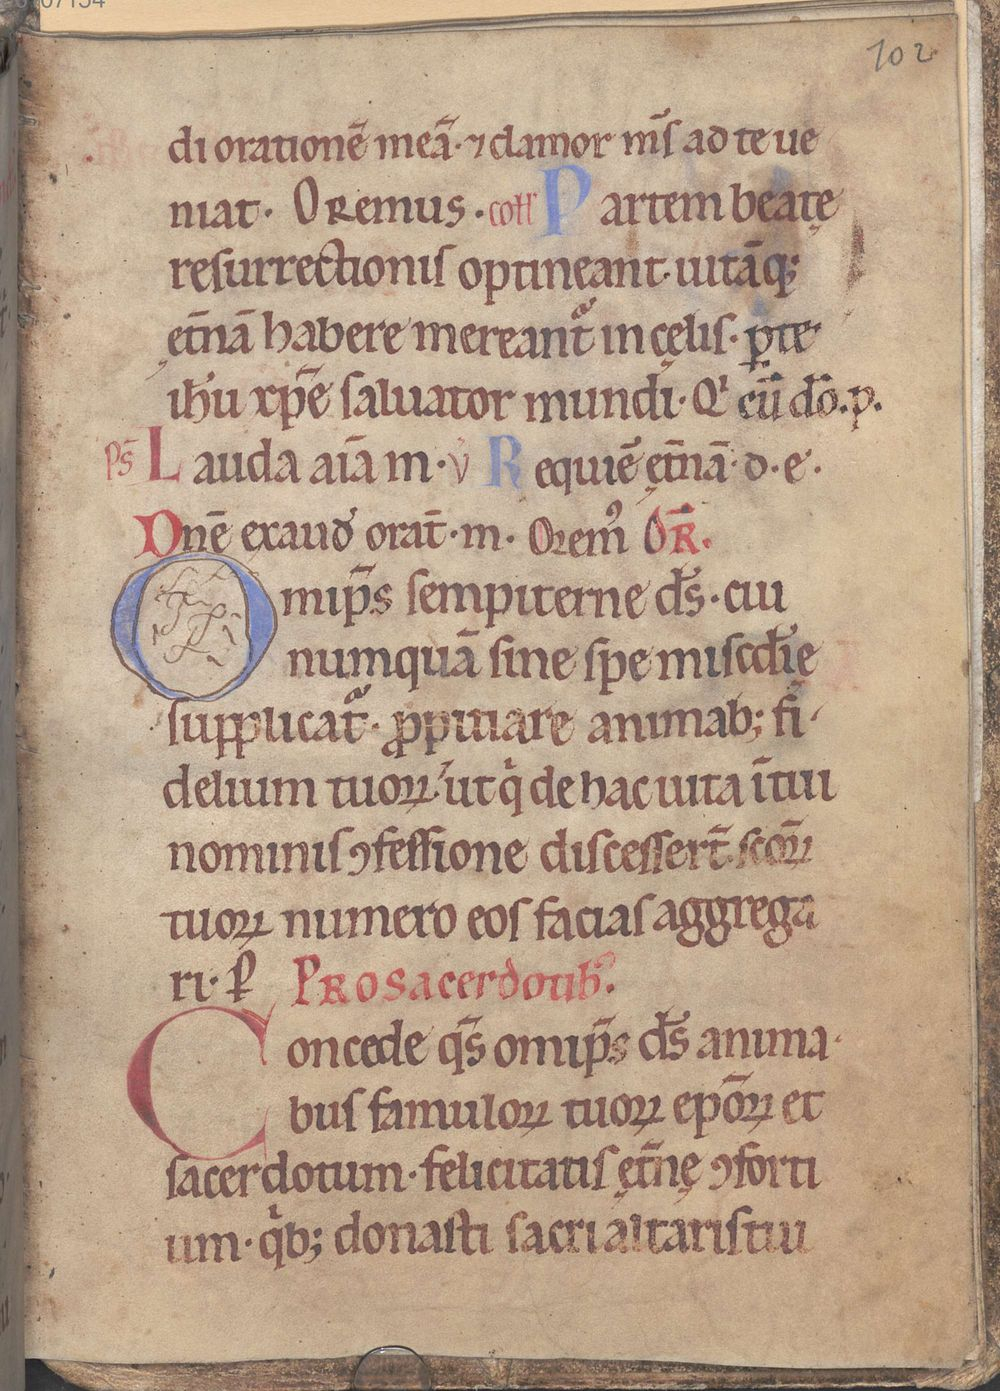 102
di orationē meā· ⁊ clamor ms̄ ad te ue
niat· Oremus· coll Partem beatę
resurrectionis optineant· uitāq;
et̄nā habere mereant᷑ in cęlis· ꝑ te·
ihu xp̄e saluator mundi· Qi cū dō.p.
ps̄ Lauda aīa m· v̄ Requiē ęt̄nā· d·e·
Dnē exaud orat̄·m· Orem᷒ OR̄.
Omip̄s sempiterne ds̄· cui
numquā sine spe miscdie
supplicat᷑· ꝓpitiare animab; fi-
delium tuoꝝ· ut q de hac uita ī tui
nominis ꝯfessione discesserт̄ scoꝝ̄
tuoꝝ numero eos facias aggrega
ri· P Pro sacerdotib᷒.
Concede qs̄ omip̄s ds̄ anima-
bus famuloꝝ tuoꝝ epōꝝ et
sacerdotum· felicitatis ęt̄nę ꝯforti
um· qb; donasti sacri altaris tui